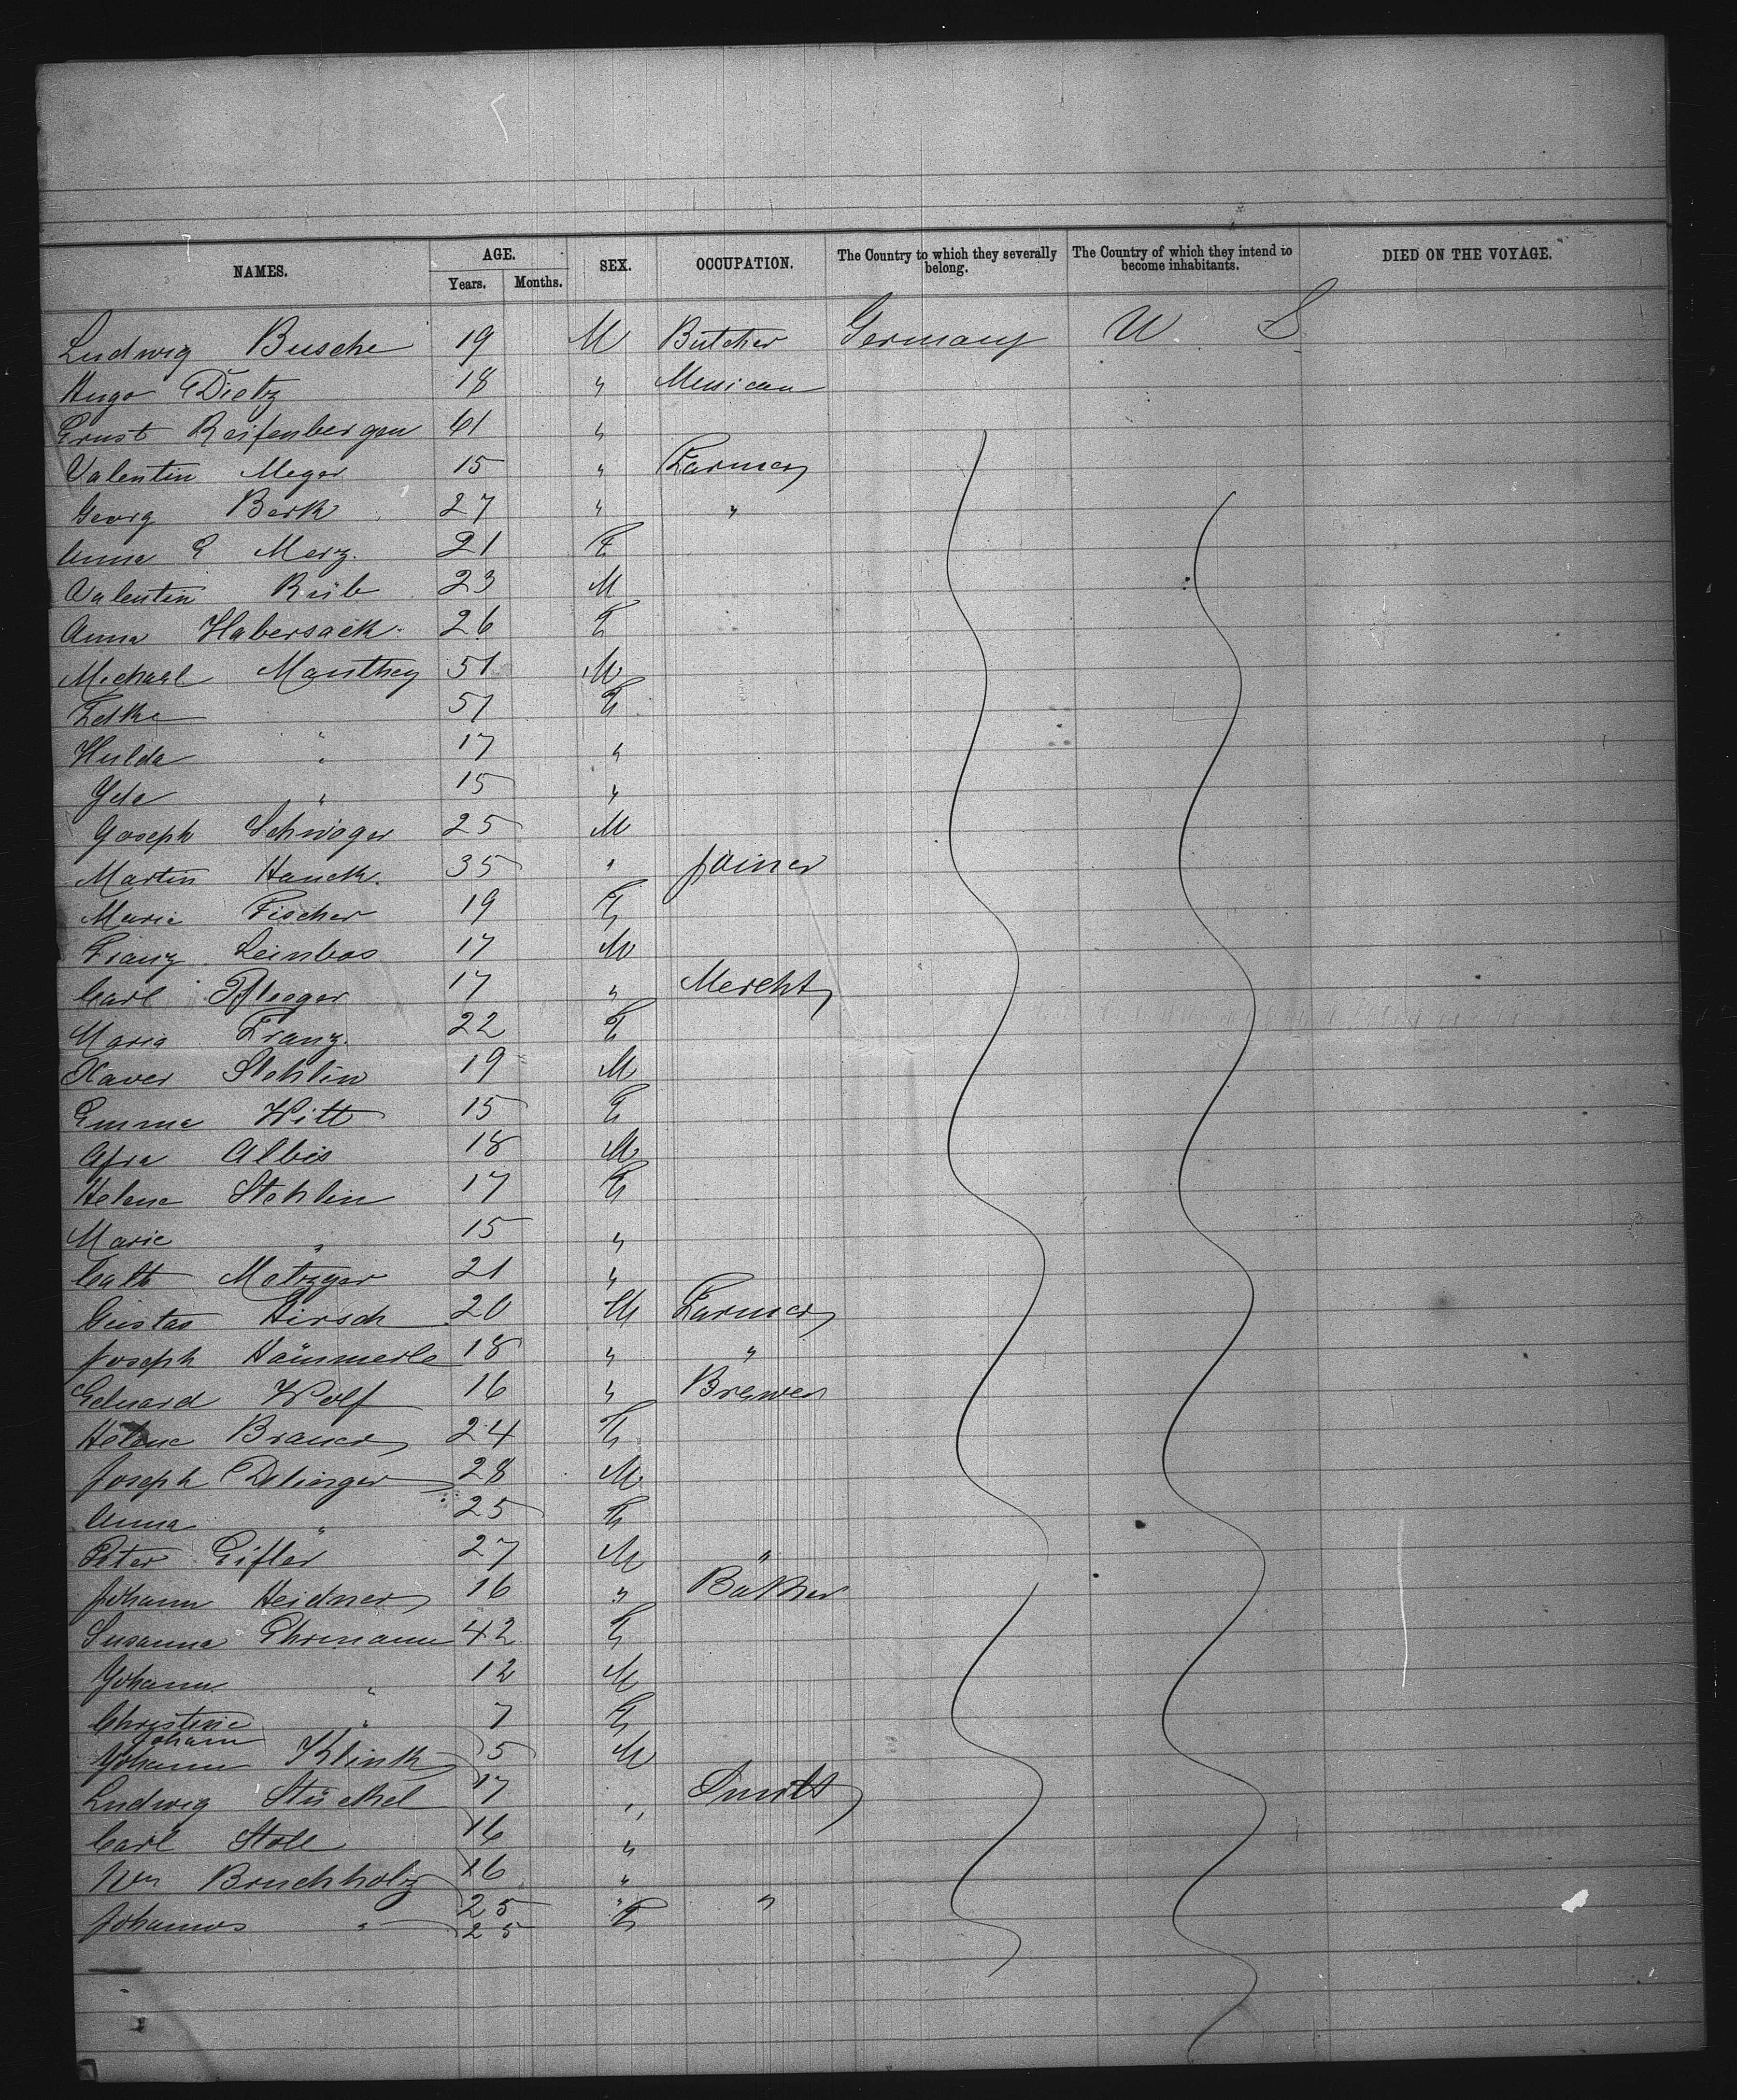 NAMES. AGE. Years. Months. SEX. OCCUPATION. The Country to which they severally belong. The Country of which they intend to become inhabitants. DIED ON THE VOYAGE.
Ludwig Busche 19 M Butcher Germany U S
Hugo Dietz 18 " Musician
Ernst Reifenbergen 61 "
Valentin Meger 15 " Farmer
Georg Berk 27 " "
Anna E Merz. 21 F
Valentin Rüb 23 M
Anna Habersack 26 F
Michael Manthey 51 M
51 F
Hulda " 17 "
Yda " 15 "
Joseph Schwoger 25 M
Martin Hauck. 35 " Joiner
Marie Fischer 19 F
Franz Leinbos 17 M
Carl Pfleeger 17 " Mercht
Maria Franz. 22 F
Xaver Stehlin 19 M
Emma Witt 15 F
Afra Albis 18 M
Helene Stehlin 17 F
Marie " 15 "
Cath Metzger 21 "
Gustav Hirsch 20 M Farmer
Joseph Hämmerle 18 " "
Eduard Wolf 16 " Brewer
Helene Brauer 24 F
Joseph Delinger 28 M
Anna " 25 F
Peter Eifler 27 M "
Johann Heidner 16 " Baker
Susanna Ehrmann 42 F
Johann " 12 M
Christine " 7 F
Johann
Johann Klink 5 M
Ludwig Stückel 17 " Smith
Carl Stoll 16 "
Wm Bruchholz 16 "
25 " "
Johannes " 25 F